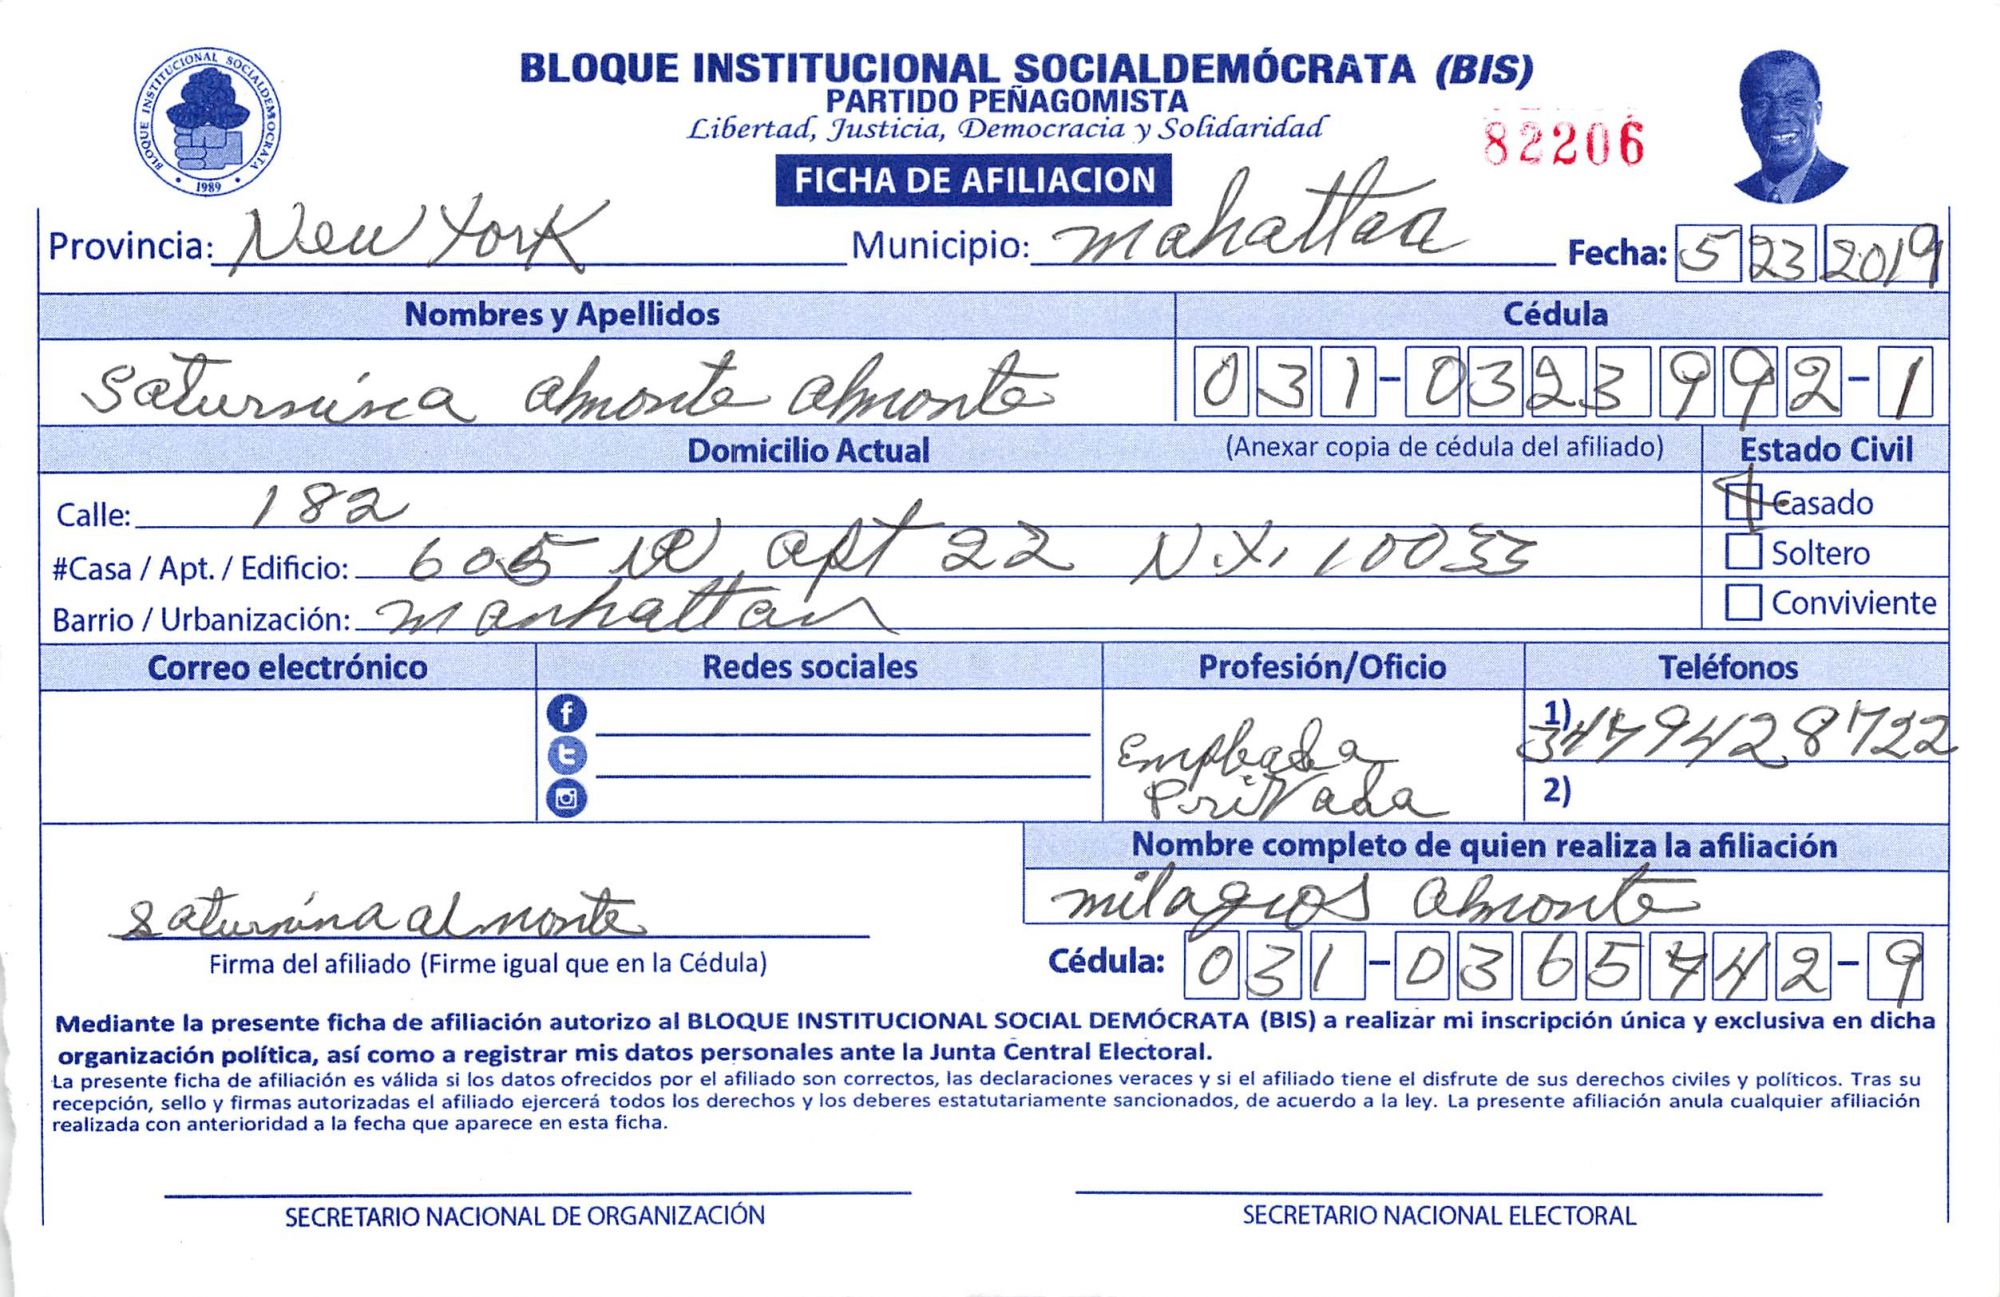 BLOQUE INSTITUCIONAL SOCIALDEMÓCRATA (BIS)
PARTIDO PEÑAGOMISTA
Libertad, Justicia, Democracia y Solidaridad
BLOQUE INSTITUCIONAL SOCIALDEMOCRATA
1989
82206
FICHA DE AFILIACION
Provincia: New York Municipio: mahattan Fecha: 5 23 2019
Nombres y Apellidos Cédula
Saturnina almonte almonte 031-0323992-1
Domicilio Actual (Anexar copia de cédula del afiliado) Estado Civil
Calle: 182 Casado
#Casa / Apt. / Edificio: 605 W apt 22 N.Y. 10033 Soltero
Barrio / Urbanización: manhattan Conviviente
Correo electrónico Redes sociales Profesión/Oficio Teléfonos
1) 3479428722
Empleada
Privada
2)
Nombre completo de quien realiza la afiliación
milagros almonte
saturnina almonte
Firma del afiliado (Firme igual que en la Cédula) Cédula: 031-0365742-9
Mediante la presente ficha de afiliación autorizo al BLOQUE INSTITUCIONAL SOCIAL DEMÓCRATA (BIS) a realizar mi inscripción única y exclusiva en dicha
organización política, así como a registrar mis datos personales ante la Junta Central Electoral.
La presente ficha de afiliación es válida si los datos ofrecidos por el afiliado son correctos, las declaraciones veraces y si el afiliado tiene el disfrute de sus derechos civiles y políticos. Tras su
recepción, sello y firmas autorizadas el afiliado ejercerá todos los derechos y los deberes estatutariamente sancionados, de acuerdo a la ley. La presente afiliación anula cualquier afiliación
realizada con anterioridad a la fecha que aparece en esta ficha.
SECRETARIO NACIONAL DE ORGANIZACIÓN SECRETARIO NACIONAL ELECTORAL